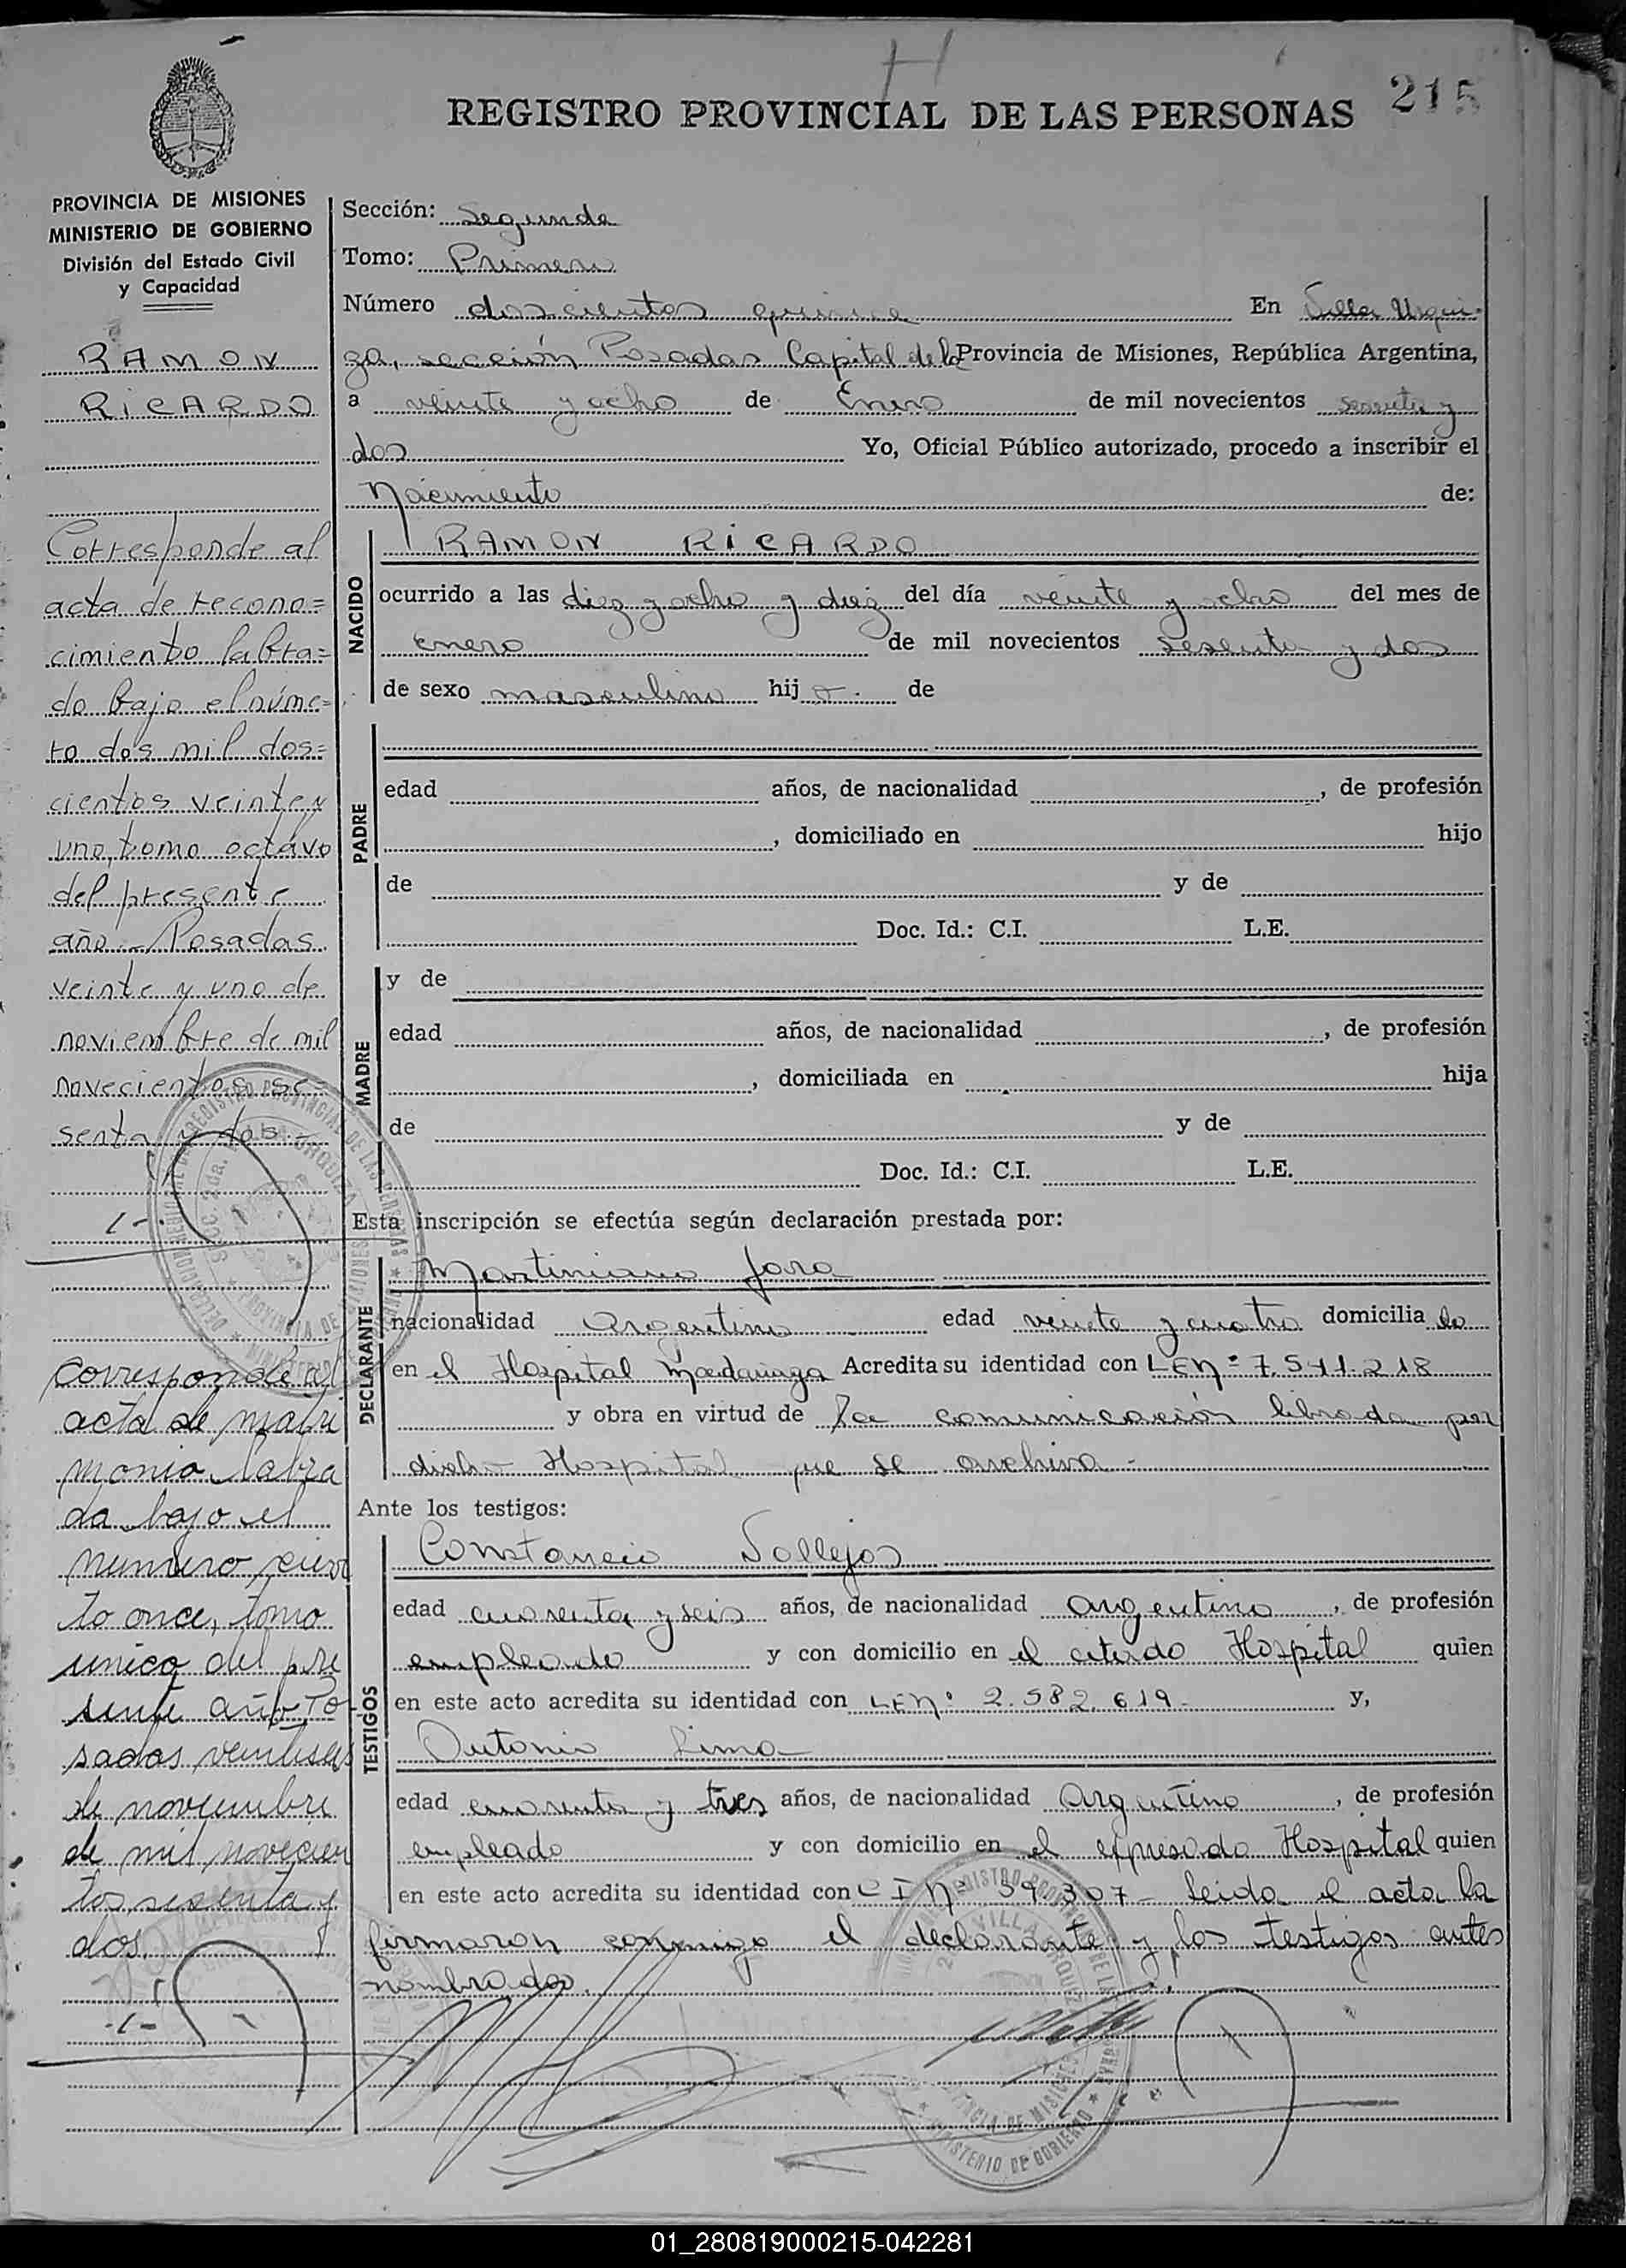 215
REGISTRO PROVINCIAL DE LAS PERSONAS
PROVINCIA DE MISIONES
MINISTERIO DE GOBIERNO
División del Estado Civil
y Capacidad
RAMON
RICARDO
Corresponde al
acta de recono=
cimiento labra=
do bajo el núme=
ro dos mil dos=
cientos veinte y
uno, tomo octavo
del presente
año - Posadas
veinte y uno de
noviembre de mil
novecientos se=
senta y dos.-
corresponde al
acta de matri
monio labra
da bajo el
numero cien
to once, tomo
unico del pre
sente año Po-
sadas veintiseis
de noviembre
de mil novecien
tos sesenta y
dos.
Sección: Segunda
Tomo: Primero
Número doscientos quince En Villa Urqui-
za, sección Posadas Capital de la Provincia de Misiones, República Argentina,
a veinte y ocho de Enero de mil novecientos sesenta y
dos Yo, Oficial Público autorizado, procedo a inscribir el
Nacimiento de:
NACIDO
RAMON RICARDO
ocurrido a las diez y ocho y diez del día veinte y ocho del mes de
enero de mil novecientos sesenta y dos
de sexo masculino hijo de
PADRE
edad años, de nacionalidad , de profesión
, domiciliado en hijo
de y de
Doc. Id.: C.I. L.E.
MADRE
y de
edad años, de nacionalidad , de profesión
, domiciliada en hija
de y de
Doc. Id.: C.I. L.E.
Esta inscripción se efectúa según declaración prestada por:
DECLARANTE
Martiniano Jara
nacionalidad Argentino edad veinte y cuatro domicilia do
en el Hospital Madariaga Acredita su identidad con LEnº 7.511.218
y obra en virtud de la comunicación librada por
dicho Hospital que se archiva.-
Ante los testigos:
TESTIGOS
Constancio Vallejos
edad cuarenta y seis años, de nacionalidad argentino , de profesión
empleado y con domicilio en el citado Hospital quien
en este acto acredita su identidad con LEnº 2.582.619- y,
Antonio Lima
edad cuarenta y tres años, de nacionalidad Argentino , de profesión
empleado y con domicilio en el expresado Hospital quien
en este acto acredita su identidad con CI Nº 59.307- Leida el acta la
firmaron conmigo el declarante y los testigos antes
nombrados.
01_280819000215-042281